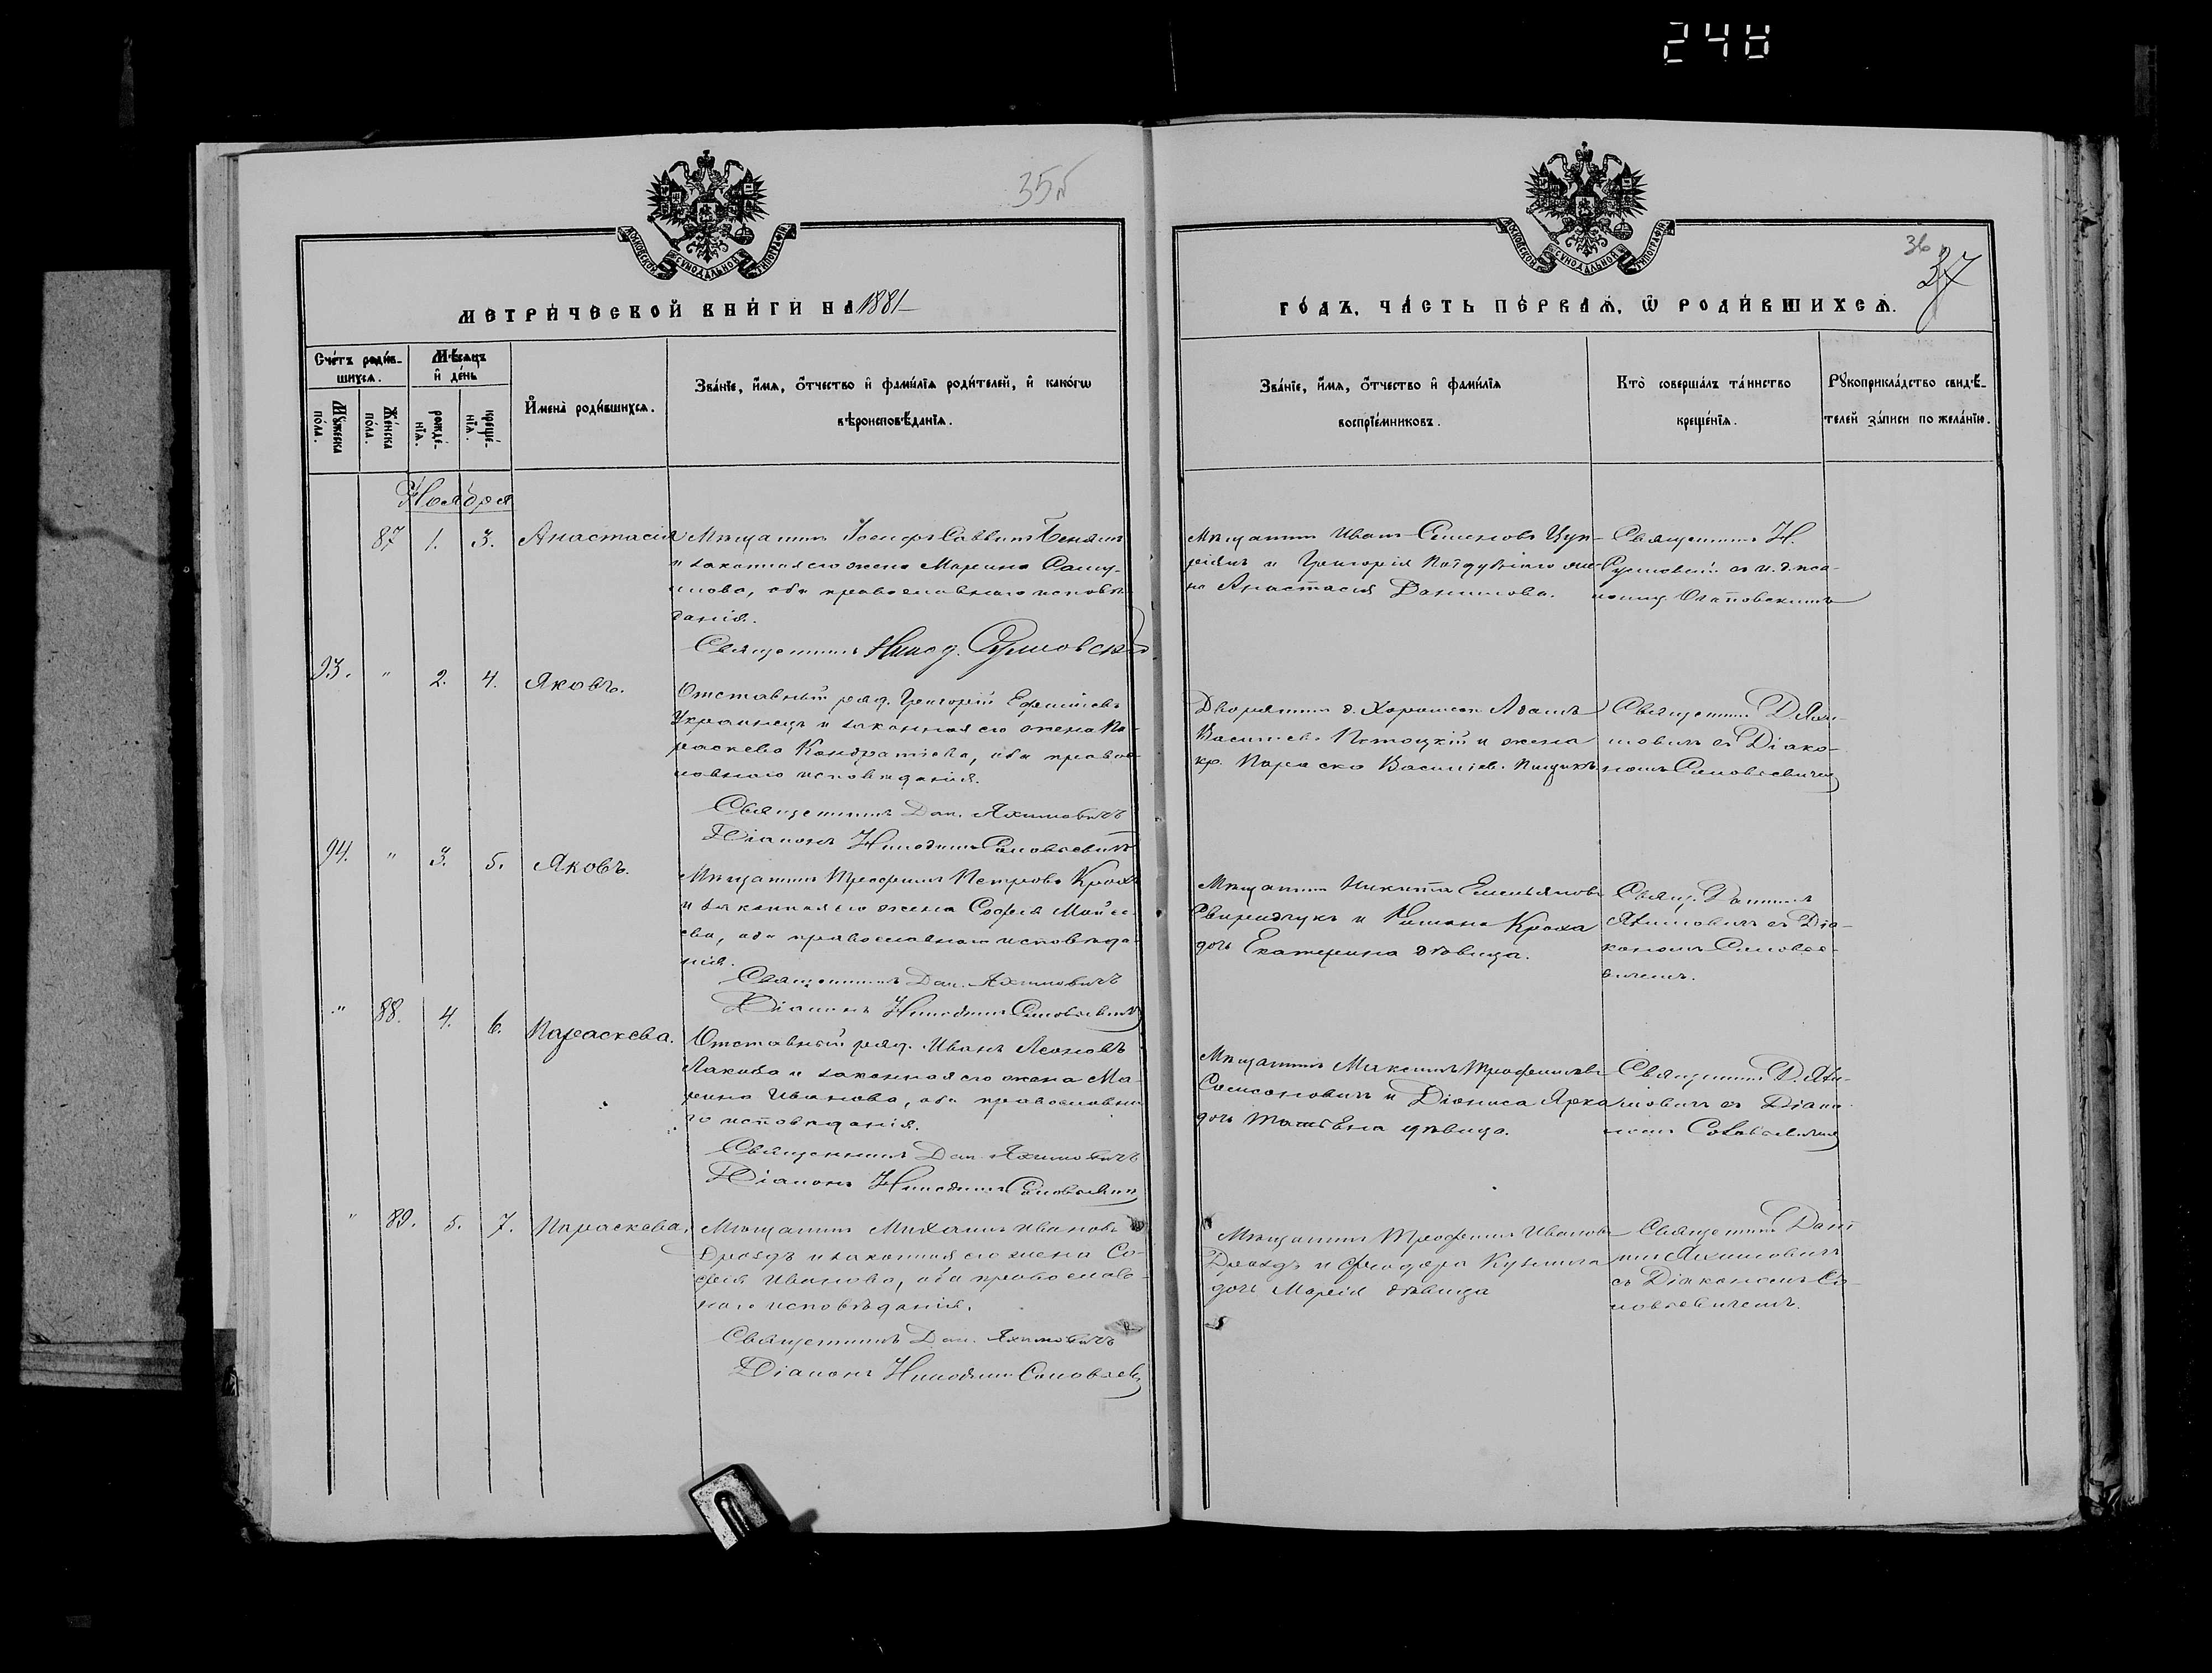 248
35об
36
37
МОСКОВСКОЙ СѴНОДАЛЬНОЙ ТИПОГРАФІИ
МОСКОВСКОЙ СѴНОДАЛЬНОЙ ТИПОГРАФІИ
МЕТРИЧЕСКОЙ КНИГИ НА 1881
ГОДЪ, ЧАСТЬ ПЕРВАЯ, Ѿ РОДИВШИХСЯ.
Счетъ родив-
шихся.
Мѣсяцъ
и день
Мужеска
пола.
Женска
пола.
рожде-
нія.
креще-
нія.
Имена родившихся.
Званіе, имя, отчество и фамилія родителей, и какогѡ
вѣроисповѣданія.
Званіе, имя, отчество и фамилія
воспріемниковъ.
Кто совершалъ таинство
крещенія.
Рукоприкладство свидѣ-
телей записи по желанію.
Ноября
87 1. 3. Анастасія
Мѣщанинъ Іосифъ Саввинъ
и законная его жена Марина
оба православнаго исповѣ
данія.
Священникъ Никод.
Мѣщанинъ Иванъ Семеновъ
и Григорія же-
на Анастасія Данилова.
Священникъ Н.
93. " 2. 4. Яковъ.
Отставный ряд. Григорій Ефимовъ
Украинецъ и законная его жена Па-
раскева Кондратіева, оба право
славнаго исповѣданія.
Священникъ Дан. Якимовичъ
Діаконъ Никодимъ Соловьевичъ
Дворянинъ Адамъ
Васильевъ Потоцкій и жена
кр. Параска Васильев.
Священникъ Д. Яки-
мовичъ съ Діако-
номъ Соловьевичемъ
94. " 3. 5. Яковъ.
Мѣщанинъ Трофимъ Петровъ Кроха
и законная его жена Софія Мойсе-
ева, оба православнаго исповѣда-
нія.
Священникъ Дан. Якимовичъ
Діаконъ Никодимъ Соловьевичъ
Мѣщанинъ Никита Емельяновъ
Свиридчукъ и Романа Кроха
дочь Екатерина дѣвица.
Свящ. Даніилъ
Якимовичъ съ Діа-
кономъ Соловье-
вичемъ.
" 88. 4. 6. Параскева.
Отставный ряд. Иванъ Леоновъ
и законная его жена Ма-
рина Иванова, оба православна
го исповѣданія.
Священникъ Дан. Якимовичъ
Діаконъ Никодимъ Соловьевичъ
Мѣщанинъ Максимъ Трофимовъ
и Діониса
дочь Татьяна дѣвица.
Священникъ Д. Яки-
мовичъ съ Діако-
номъ Соловьевичемъ
" 89. 5. 7. Параскева.
Мѣщанинъ Михаилъ Ивановъ
Дроздъ и законная его жена Со-
фія Иванова, оба православ-
наго исповѣданія.
Священникъ Дан. Якимовичъ
Діаконъ Никодимъ Соловьев
Мѣщанинъ Трофимъ Ивановъ
Дроздъ и Феодора
дочь Марія дѣвица
Священникъ Дані
илъ Якимовичъ
съ Діакономъ Со-
ловьевичемъ.